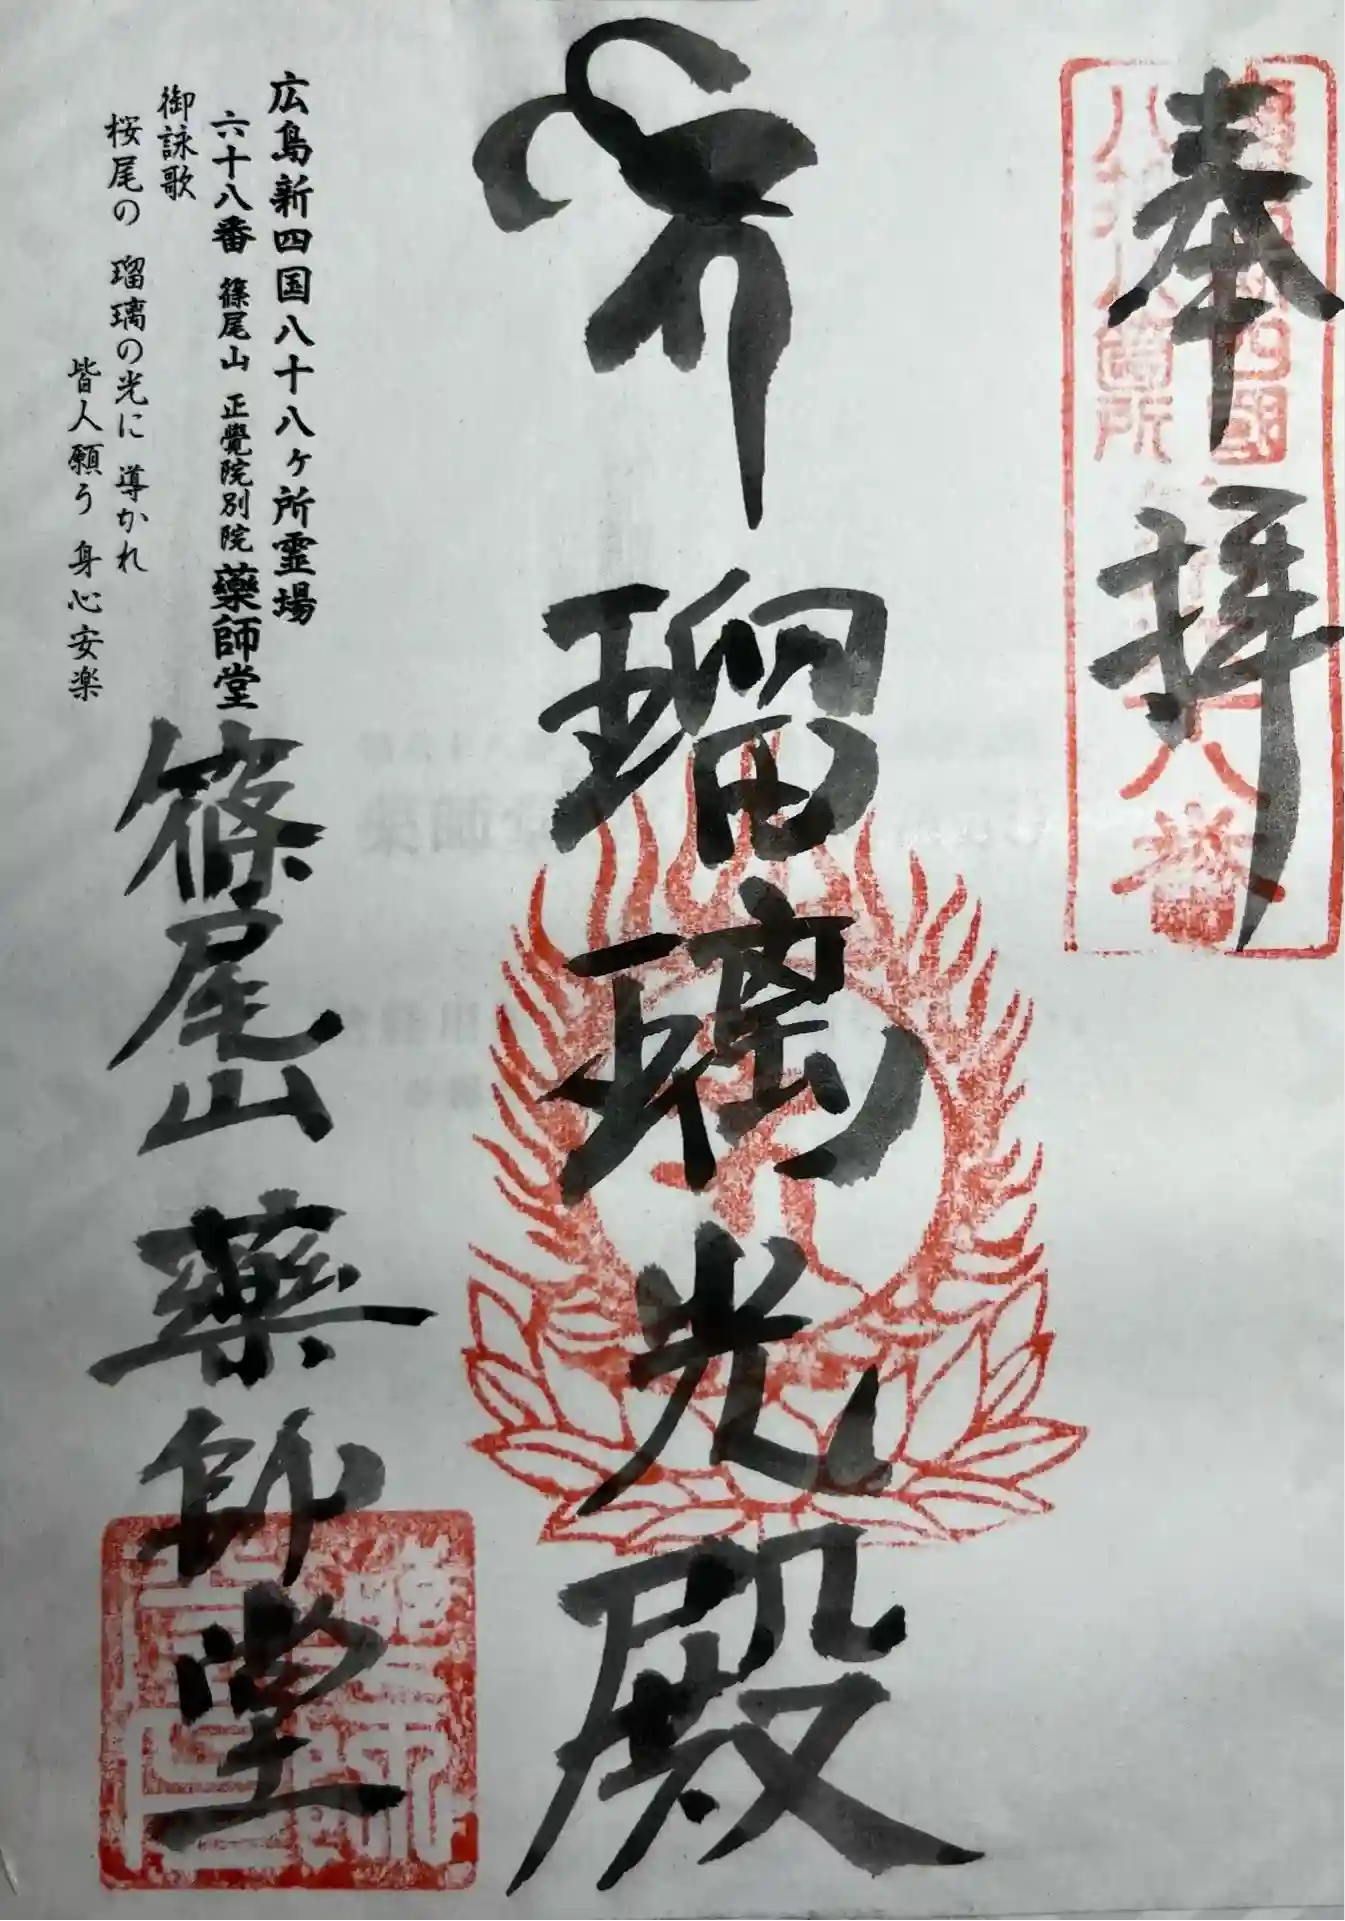 奉拝
八十八箇所
六十八番
瑠璃光殿
広島新四国八十八ヶ所霊場
六十八番 篠尾山 正覺院別院 藥師堂
御詠歌
桜尾の 瑠璃の光に 導かれ
皆人願う 身心安楽
篠尾山 藥師堂